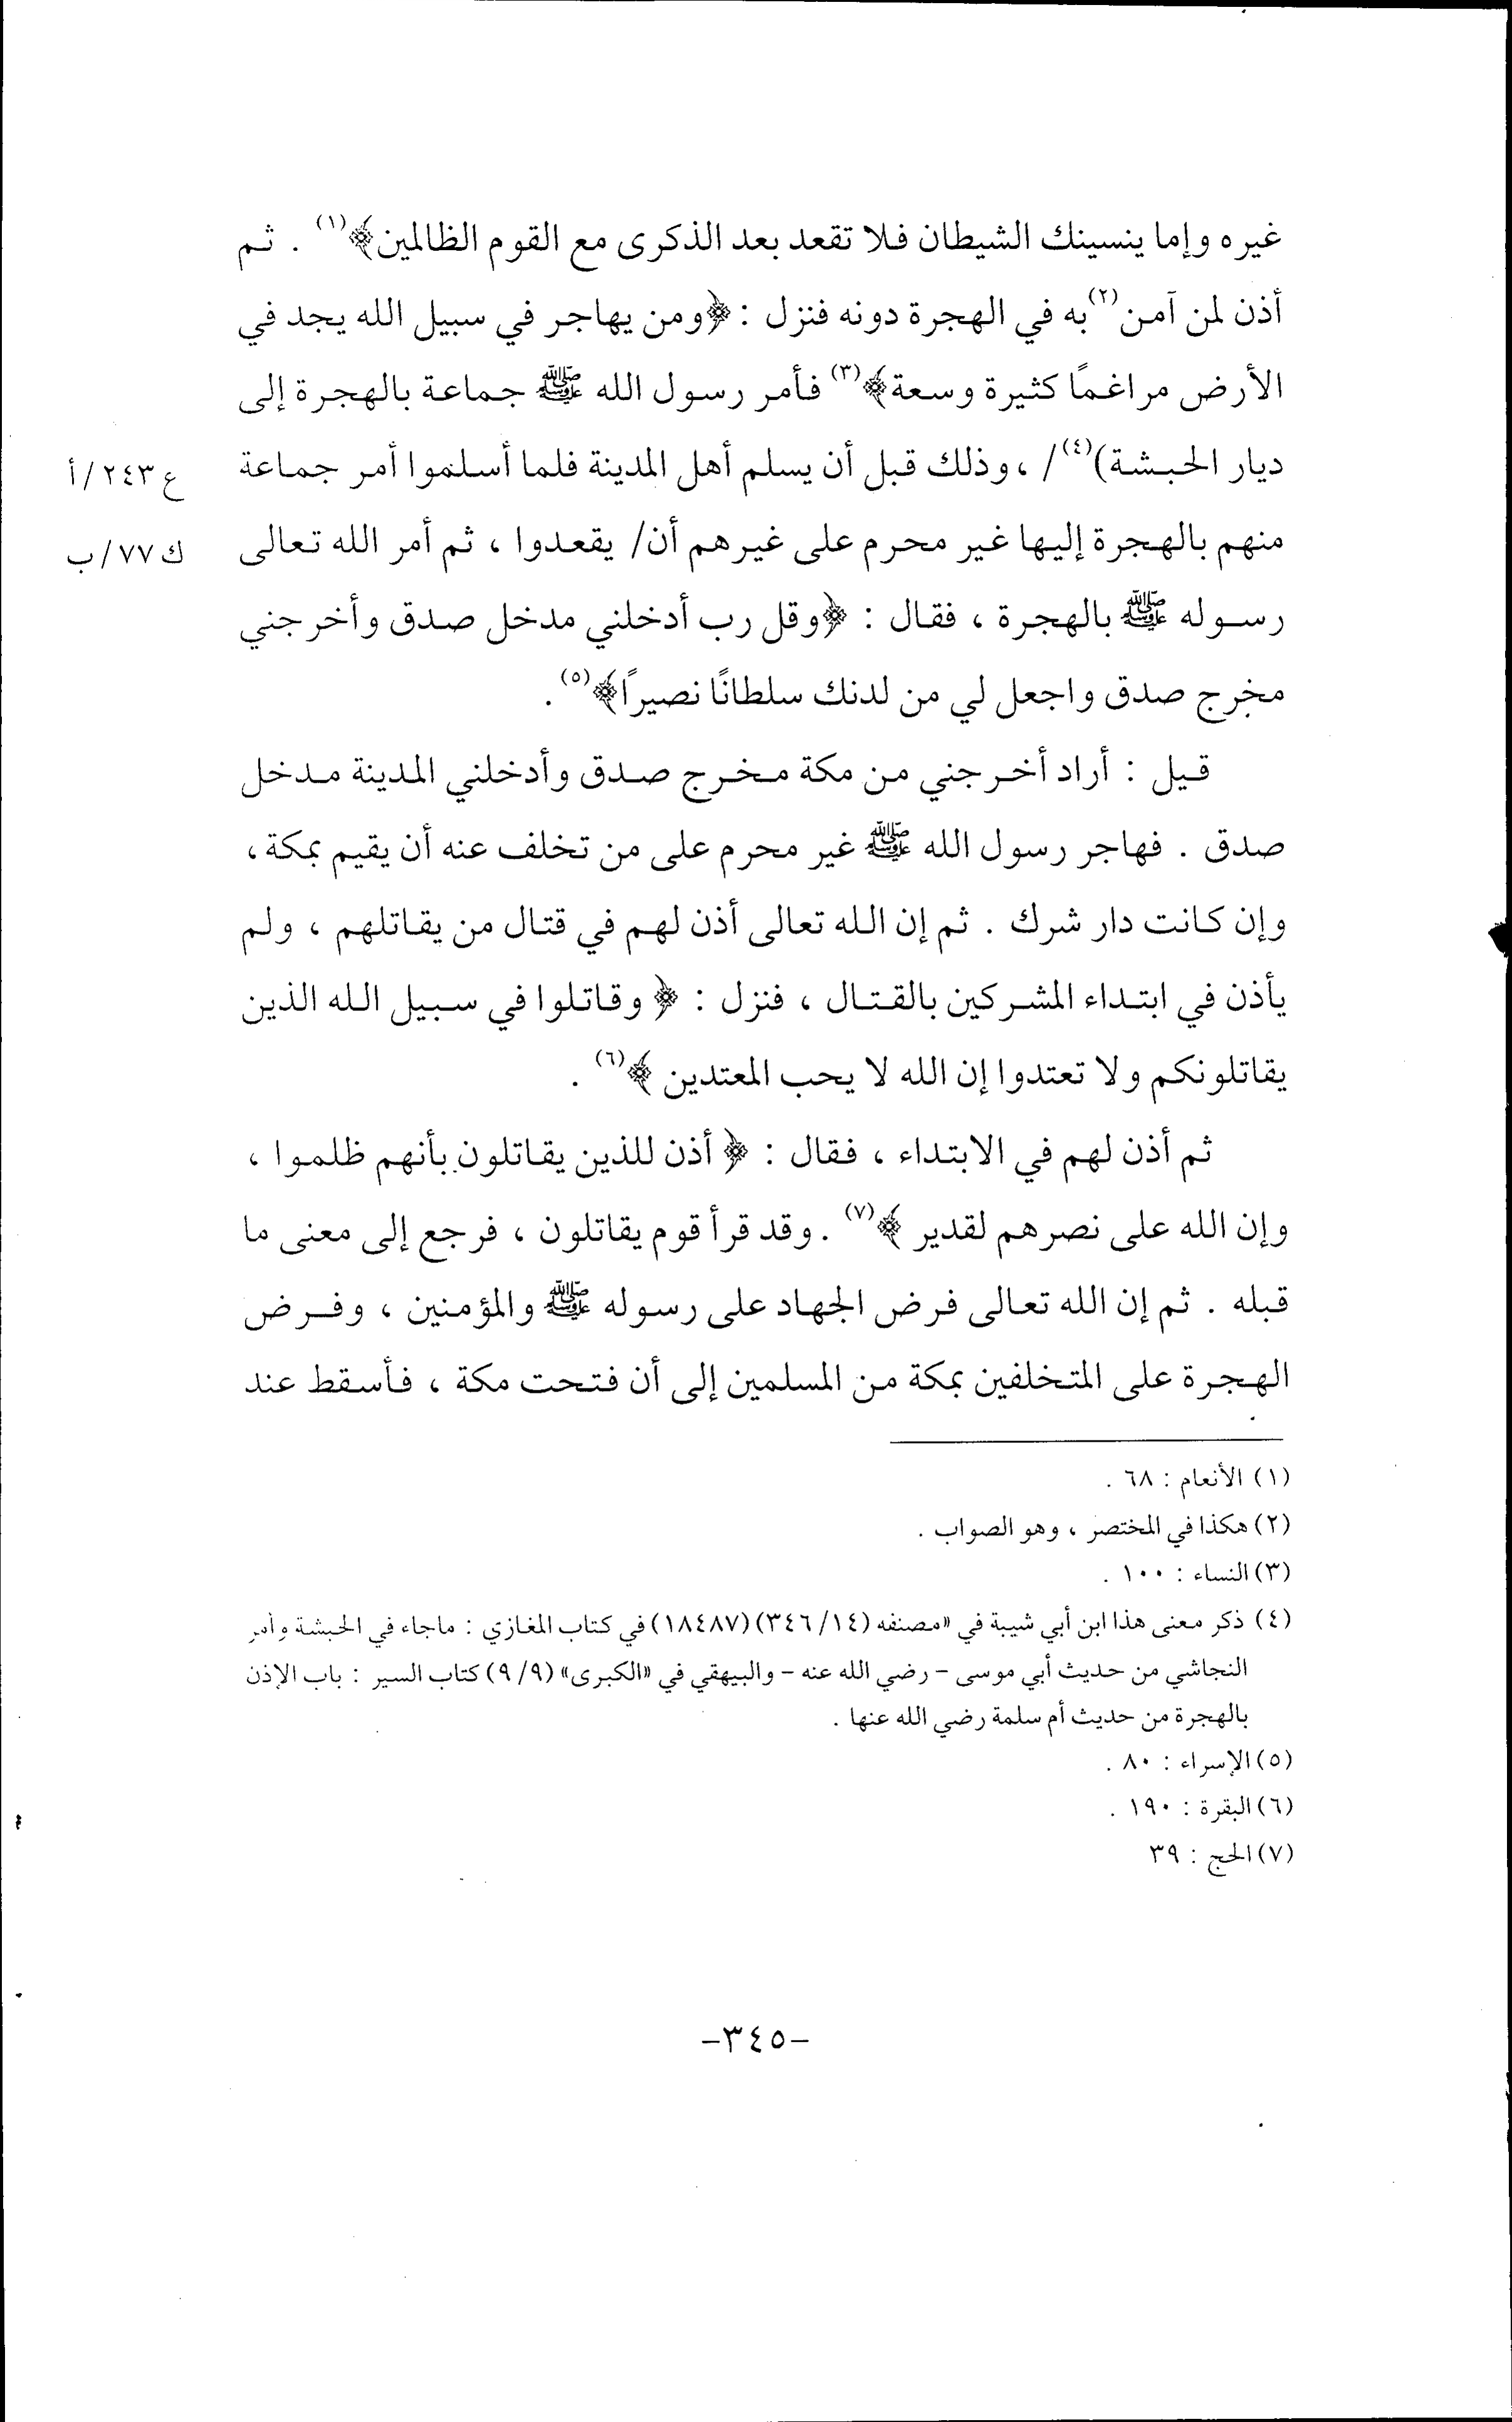 غيره وإما ينسينك الشيطان فلا تقعد بعد الذكرى مع القوم الظالمين﴾(١) . ثم
أذن لمن آمن(٢) به في الهجرة دونه فنزل : ﴿ومن يهاجر في سبيل الله يجد في
الأرض مراغمًا كثيرة وسعة﴾(٣) فأمر رسول الله ﷺ جماعة بالهجرة إلى
ديار الحبشة)(٤)/ ، وذلك قبل أن يسلم أهل المدينة فلما أسلموا أمر جماعة
ع ٢٤٣/أ
منهم بالهجرة إليها غير محرم على غيرهم أن/ يقعدوا ، ثم أمر الله تعالى
ك ٧٧/ب
رسوله ﷺ بالهجرة ، فقال : ﴿وقل رب أدخلني مدخل صدق وأخرجني
مخرج صدق واجعل لي من لدنك سلطانًا نصيرًا﴾(٥) .
قيل : أراد أخرجني من مكة مخرج صدق وأدخلني المدينة مدخل
صدق . فهاجر رسول الله ﷺ غير محرم على من تخلف عنه أن يقيم بمكة ،
وإن كانت دار شرك . ثم إن الله تعالى أذن لهم في قتال من يقاتلهم ، ولم
يأذن في ابتداء المشركين بالقتال ، فنزل : ﴿ وقاتلوا في سبيل الله الذين
يقاتلونكم ولا تعتدوا إن الله لا يحب المعتدين ﴾(٦) .
ثم أذن لهم في الابتداء ، فقال : ﴿ أذن للذين يقاتلون بأنهم ظلموا ،
وإن الله على نصرهم لقدير ﴾(٧) . وقد قرأ قوم يقاتلون ، فرجع إلى معنى ما
قبله . ثم إن الله تعالى فرض الجهاد على رسوله ﷺ والمؤمنين ، وفرض
الهجرة على المتخلفين بمكة من المسلمين إلى أن فتحت مكة ، فأسقط عند
(١) الأنعام : ٦٨ .
(٢) هكذا في المختصر ، وهو الصواب .
(٣) النساء : ١٠٠ .
(٤) ذكر معنى هذا ابن أبي شيبة في «مصنفه (١٤/ ٣٤٦) (١٨٤٨٧) في كتاب المغازي : ماجاء في الحبشة وأمر
النجاشي من حديث أبي موسى - رضي الله عنه - والبيهقي في «الكبرى» (٩/ ٩) كتاب السير : باب الإذن
بالهجرة من حديث أم سلمة رضي الله عنها .
(٥) الإسراء : ٨٠ .
(٦) البقرة : ١٩٠ .
(٧) الحج : ٣٩
-٣٤٥-